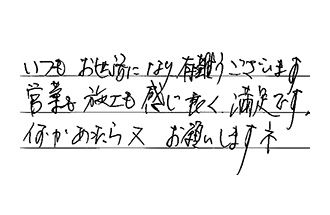 いつも お世話になり 有難うございます
営業も 施工も 感じ良く 満足です.
何かあったら又 お願いしますネ